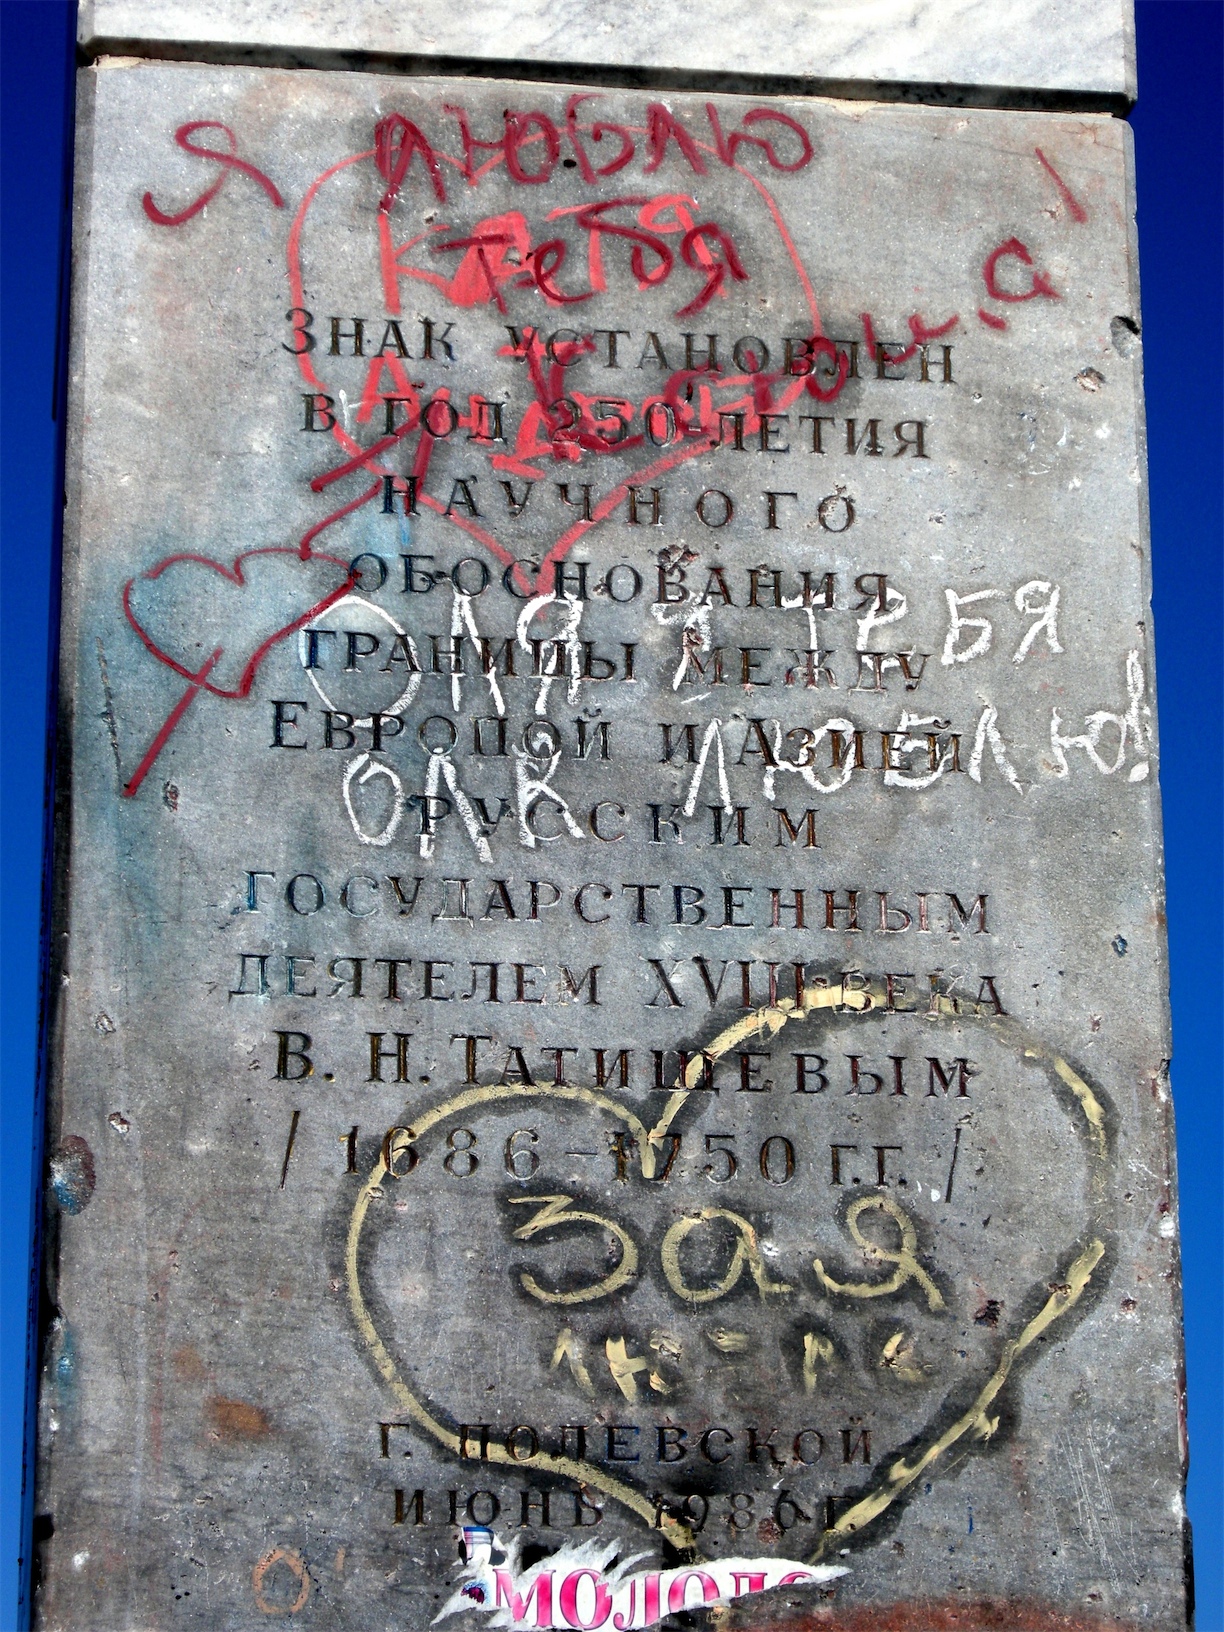 Я ЛЮБЛЮ
тебя
ЗНАК УСТАНОВЛЕН
В ГОД 250-ЛЕТИЯ
НАУЧНОГО
ОБОСНОВАНИЯ
ОЛЯ Я ТЕБЯ
ГРАНИЦЫ МЕЖДУ
ЕВРОПОЙ И АЗИЕЙ
ЛЮБЛЮ!
РУССКИМ
ГОСУДАРСТВЕННЫМ
ДЕЯТЕЛЕМ XVIII ВЕКА
В. Н. ТАТИЩЕВЫМ
/1686-1750 г.г./
Зая
Г. ПОЛЕВСКОЙ
ИЮНЬ 1986 г.
МОЛОДО